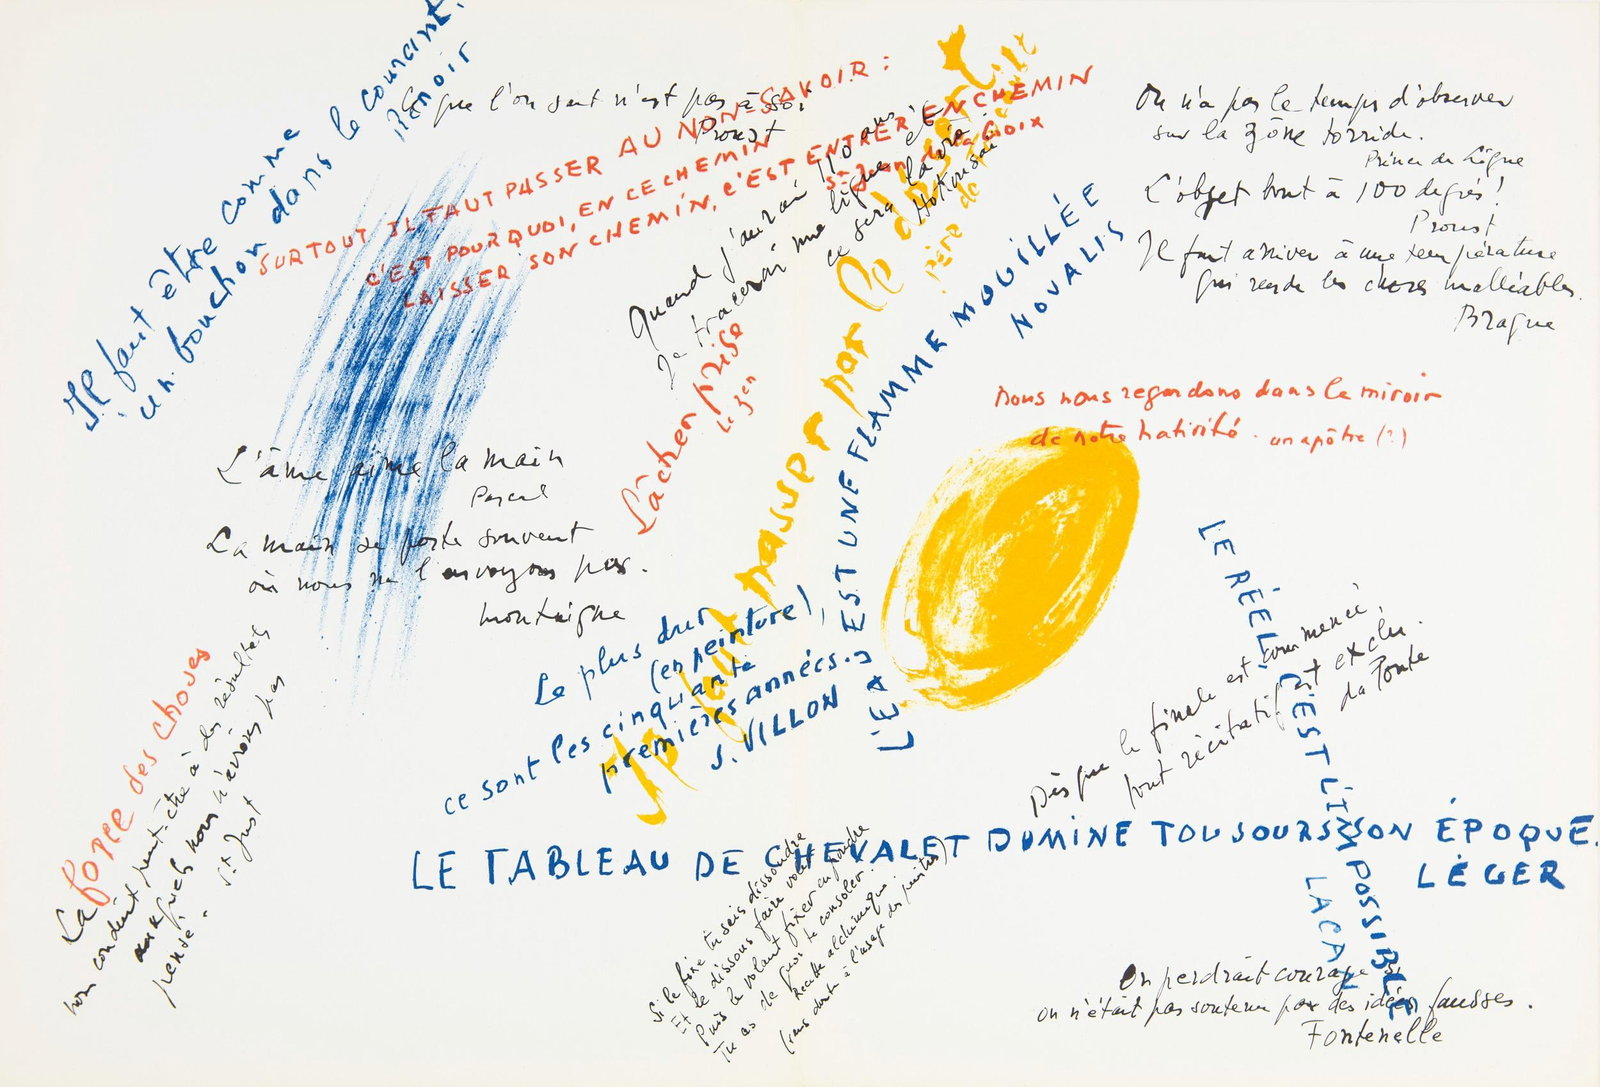 Il faut être comme
un bouchon dans le courant.
Renoir
Ce que l'on sait n'est pas à soi
Proust
SURTOUT IL FAUT PASSER AU NON-SAVOIR :
C'EST POURQUOI, EN CE CHEMIN
LAISSER SON CHEMIN, C'EST ENTRER EN CHEMIN
St Jean de la Croix
Quand j'aurai 110 ans
je tracerai une ligne et
ce sera la vie
Hokusai
Il faut passer par le
Père de
On n'a pas le temps d'observer
sur la zône torride.
Prince de Ligne
L'objet bout à 100 degrés !
Proust
Il faut arriver à une température
qui rende les choses malléables.
Braque
Lâcher prise
Le zen
L'EAU EST UNE FLAMME MOUILLÉE
NOVALIS
Nous nous regardons dans le miroir
de notre nativité. un apôtre (?)
L'âme aime la main
Pascal
La main se porte souvent
où nous ne l'envoyons pas.
Montaigne
Le plus dur
(en peinture),
ce sont les cinquante
premières années.
J. VILLON
LE RÉEL, C'EST L'IMPOSSIBLE
LACAN
Dès que le finale est commencé,
tout récitatif est exclu.
da Ponte
La force des choses
nous conduit peut-être à des résultats
auxquels nous n'avions pas
pensé.
St Just
LE TABLEAU DE CHEVALET DOMINE TOUJOURS SON ÉPOQUE.
LÉGER
Si le fixe tu sais dissoudre
Et le dissous faire voler
Puis le volant fixer en poudre
Tu as de quoi te consoler.
Recette alchimique
(sans doute à l'usage des peintres)
On perdrait courage si
on n'était pas soutenu par des idées fausses.
Fontenelle